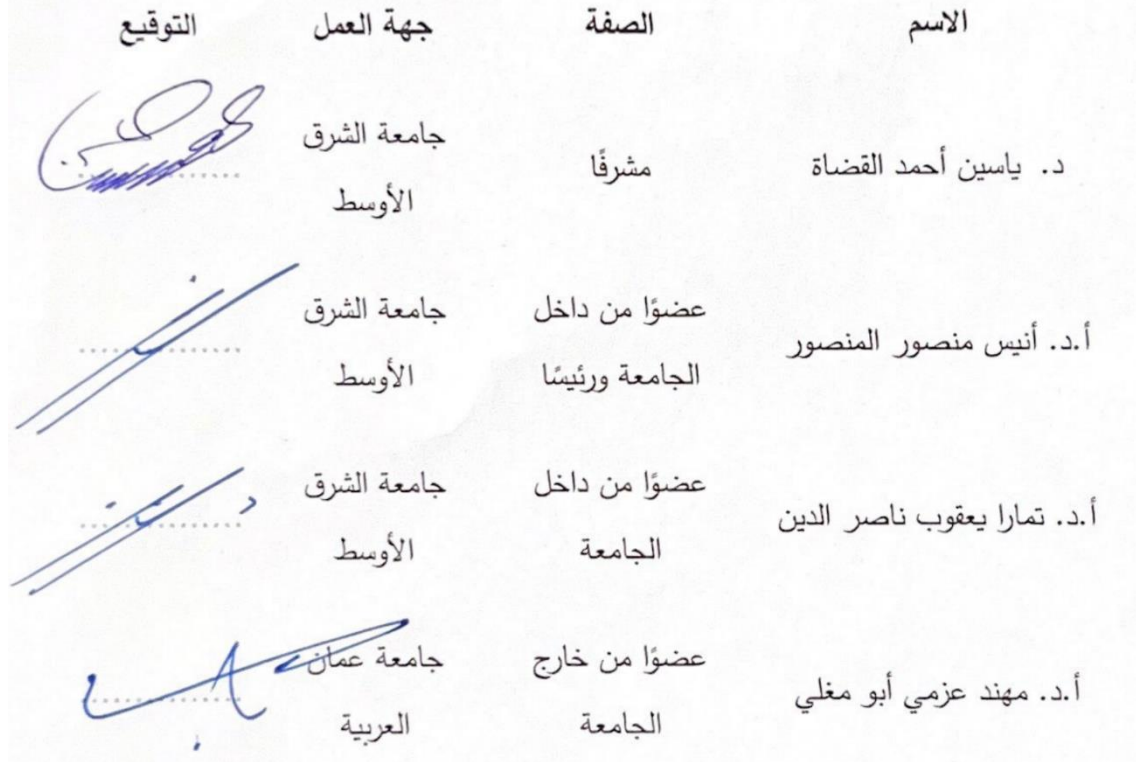 الاسم الصفة جهة العمل التوقيع
د. ياسين أحمد القضاة مشرفًا جامعة الشرق
الأوسط
أ.د. أنيس منصور المنصور عضوًا من داخل جامعة الشرق
الجامعة ورئيسًا الأوسط
أ.د. تمارا يعقوب ناصر الدين عضوًا من داخل جامعة الشرق
الجامعة الأوسط
أ.د. مهند عزمي أبو مغلي عضوًا من خارج جامعة عمان
الجامعة العربية